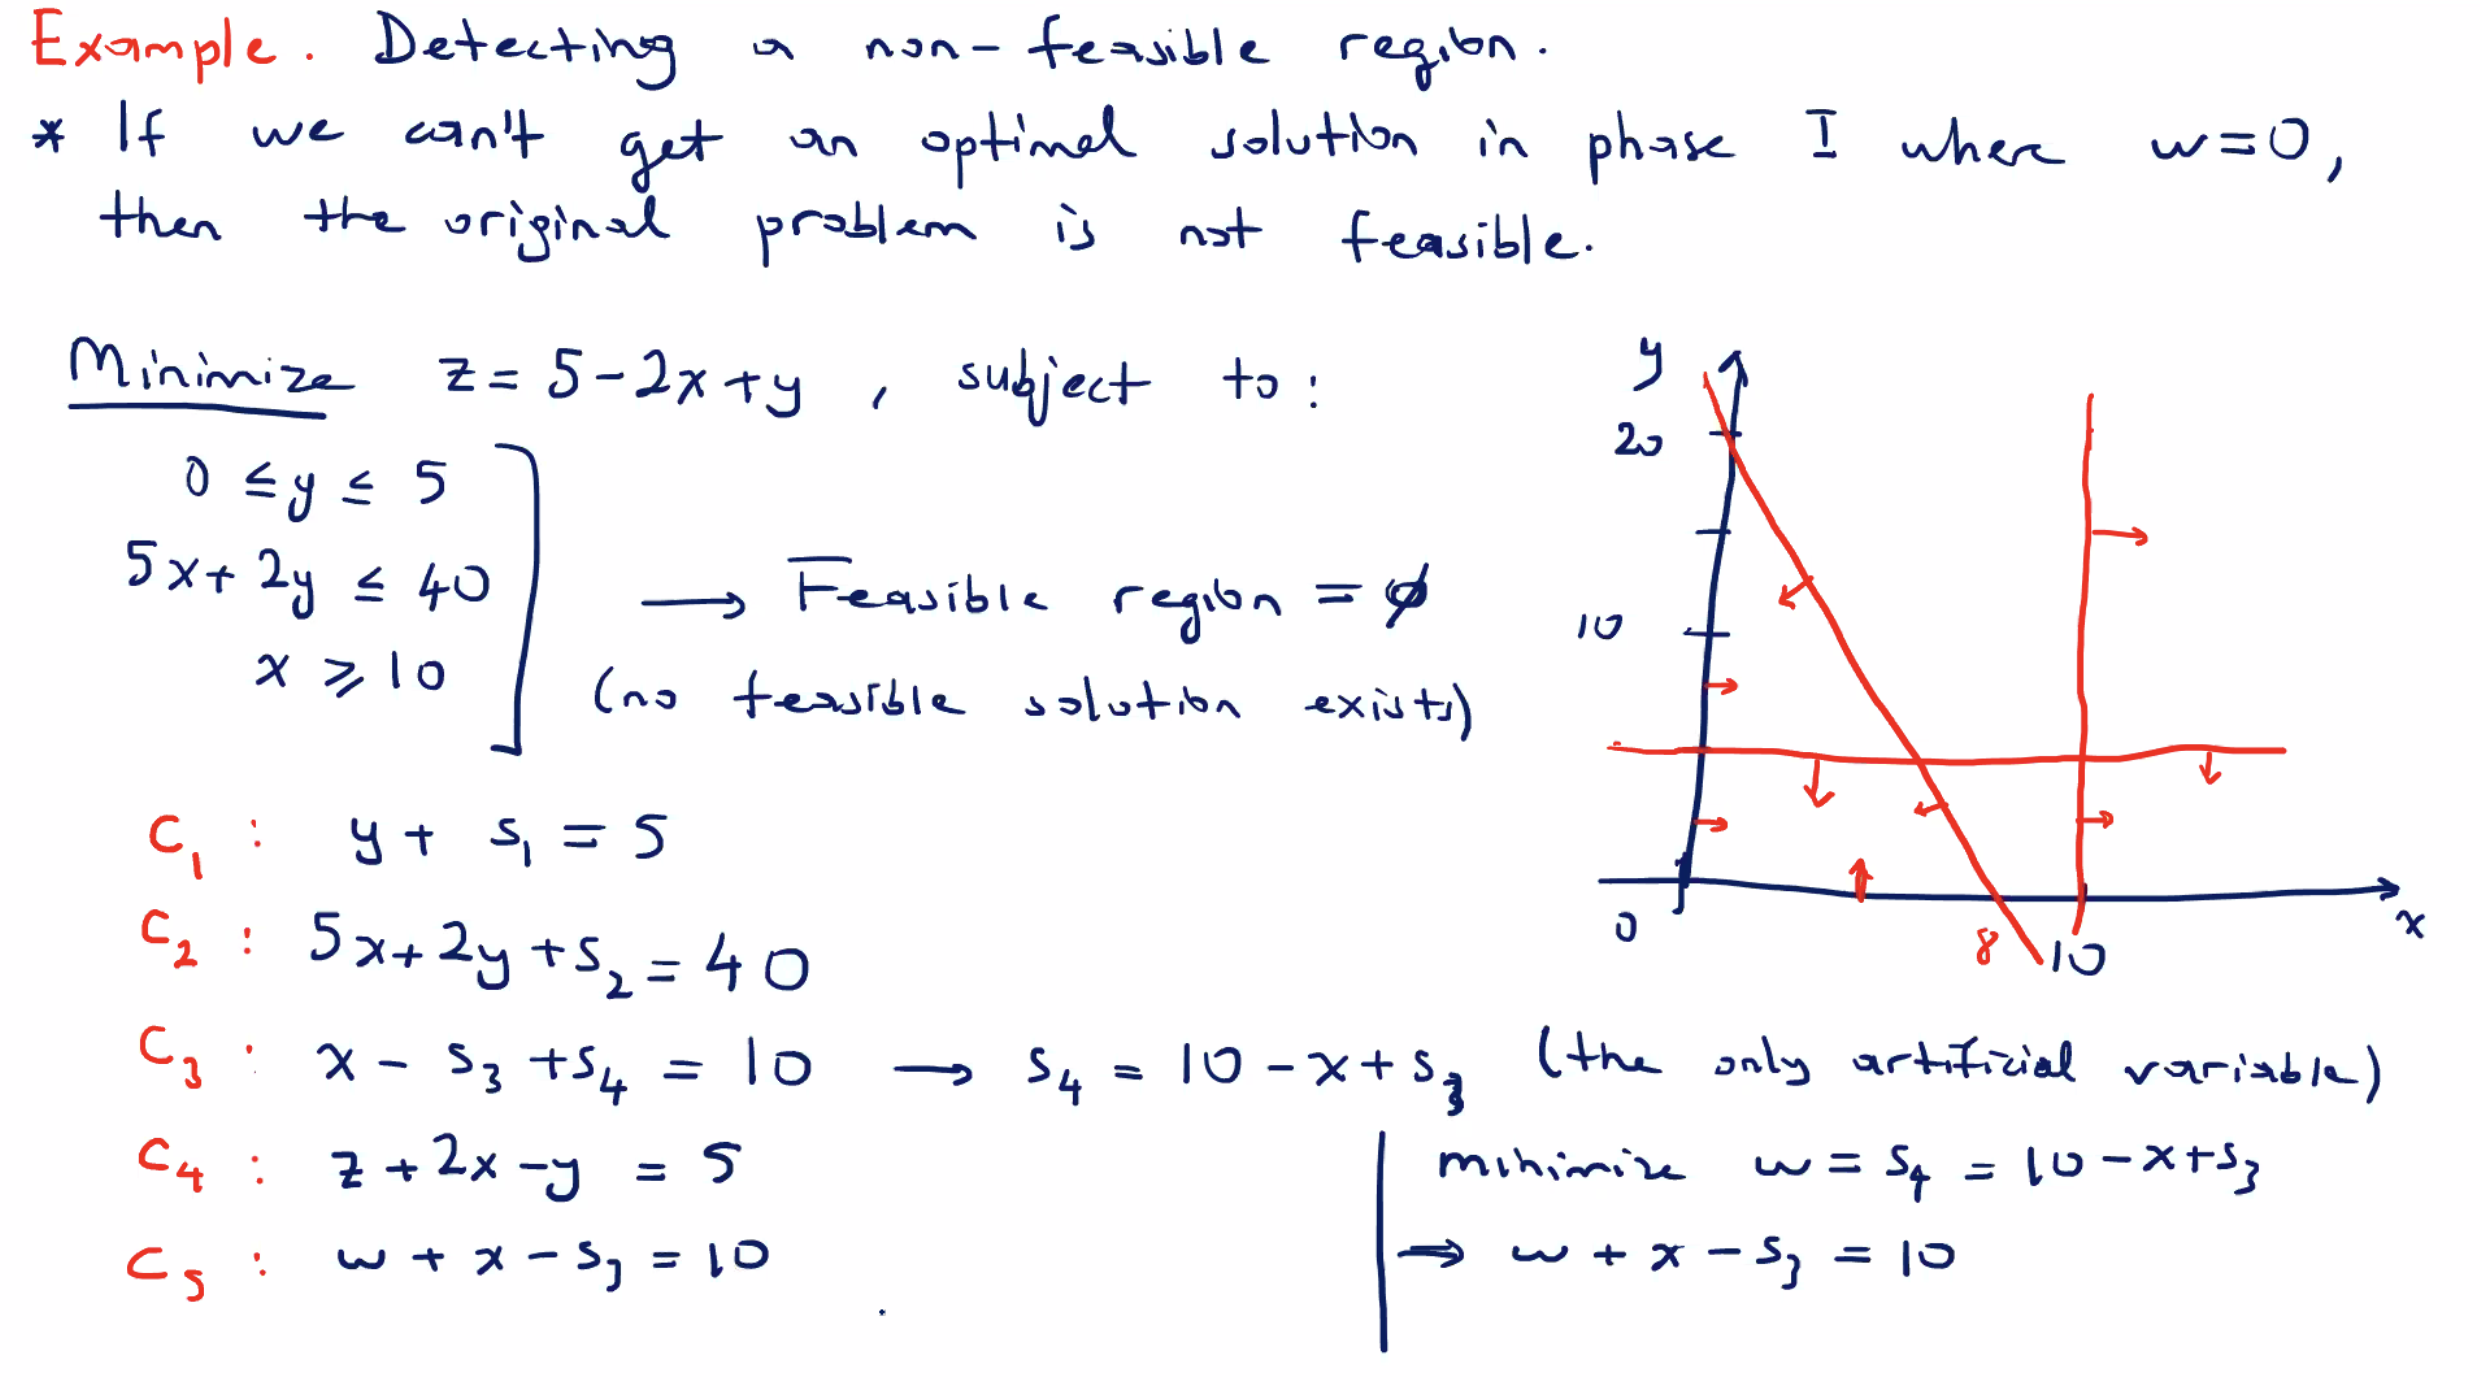 Example. Detecting a non-feasible region.
* If we can't get an optimal solution in phase I where w=0,
then the original problem is not feasible.
Minimize z = 5-2x+y , subject to:
0 ≤ y ≤ 5
5x+2y ≤ 40
x ≥ 10
→ Feasible region = ∅
(no feasible solution exists)
y
20
10
0
8
10
x
C₁ : y + s₁ = 5
C₂ : 5x+2y+s₂ = 40
C₃ : x - s₃ + s₄ = 10 → s₄ = 10-x+s₃ (the only artificial variable)
C₄ : z+2x-y = 5
minimize w = s₄ = 10-x+s₃
C₅ : w + x - s₃ = 10
→ w + x - s₃ = 10